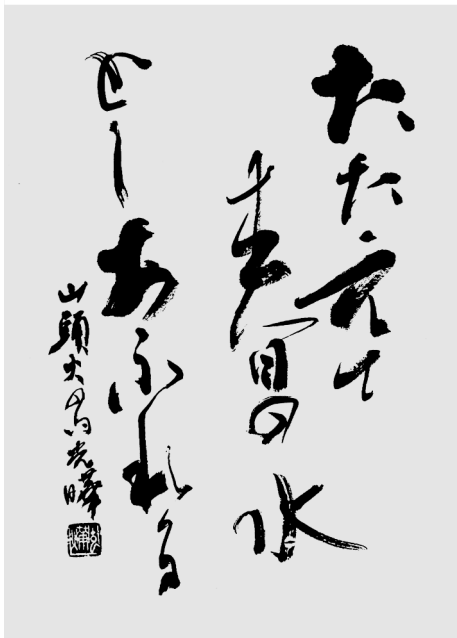 たたえて
の水
としあふれる
山頭火の句